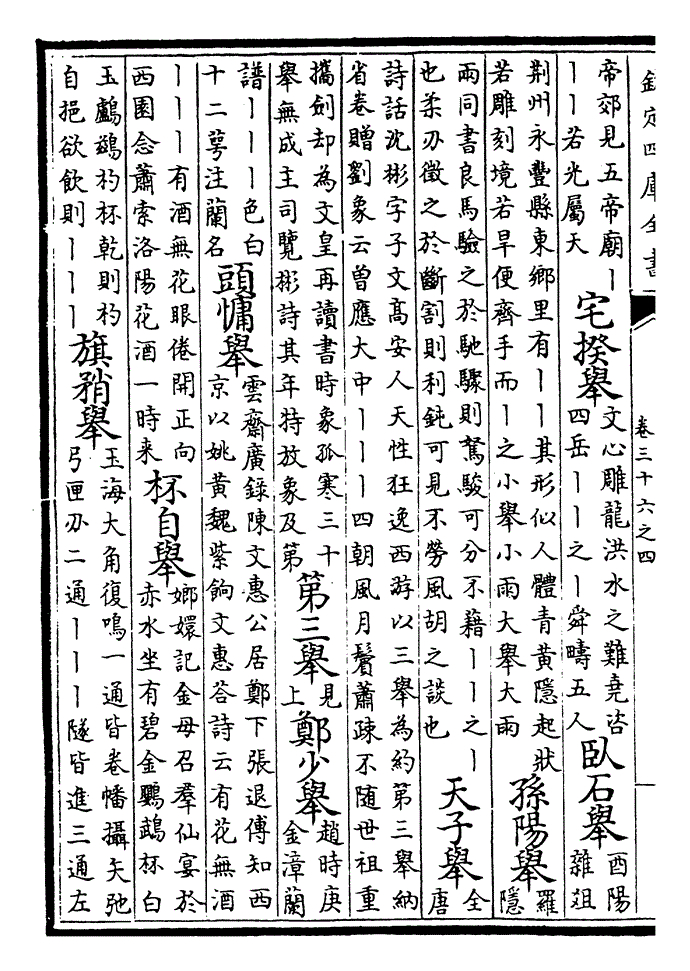 欽定四庫全書
卷三十六之四
帝郊見五帝廟丨
丨丨若光屬天
宅揆舉
文心雕龍洪水之難堯咨
四岳丨丨之丨舜疇五人
臥石舉
酉陽
雜俎
荆州永豐縣東鄉里有丨丨其形似人體青黃隱起狀
若雕刻境若旱便齊手而丨之小舉小雨大舉大雨
孫陽舉
羅
隱
兩同書良馬驗之於馳驟則駑駿可分不藉丨丨之丨
也柔刃徵之於斷割則利鈍可見不勞風胡之談也
天子舉
全
唐
詩話沈彬字子文高安人天性狂逸西游以三舉為約第三舉納
省卷贈劉象云曽應大中丨丨丨四朝風月鬢蕭疎不随世祖重
攜劍却為文皇再讀書時象孤寒三十
舉無成主司覽彬詩其年特放象及第
第三舉
見
上
鄭少舉
趙時庚
金漳蘭
譜丨丨丨色白
十二萼注蘭名
頭慵舉
雲齋廣錄陳文惠公居鄭下張退傅知西
京以姚黃魏紫餉文惠荅詩云有花無酒
丨丨丨有酒無花眼倦開正向
西園念蕭索洛陽花酒一時来
杯自舉
嫏嬛記金母召羣仙宴於
赤水坐有碧金鸚鵡杯白
玉鸕鷀杓杯乾則杓
自挹欲飲則丨丨丨
旗矟舉
玉海大角復鳴一通皆卷幡攝矢弛
弓匣刃二通丨丨丨隊皆進三通左